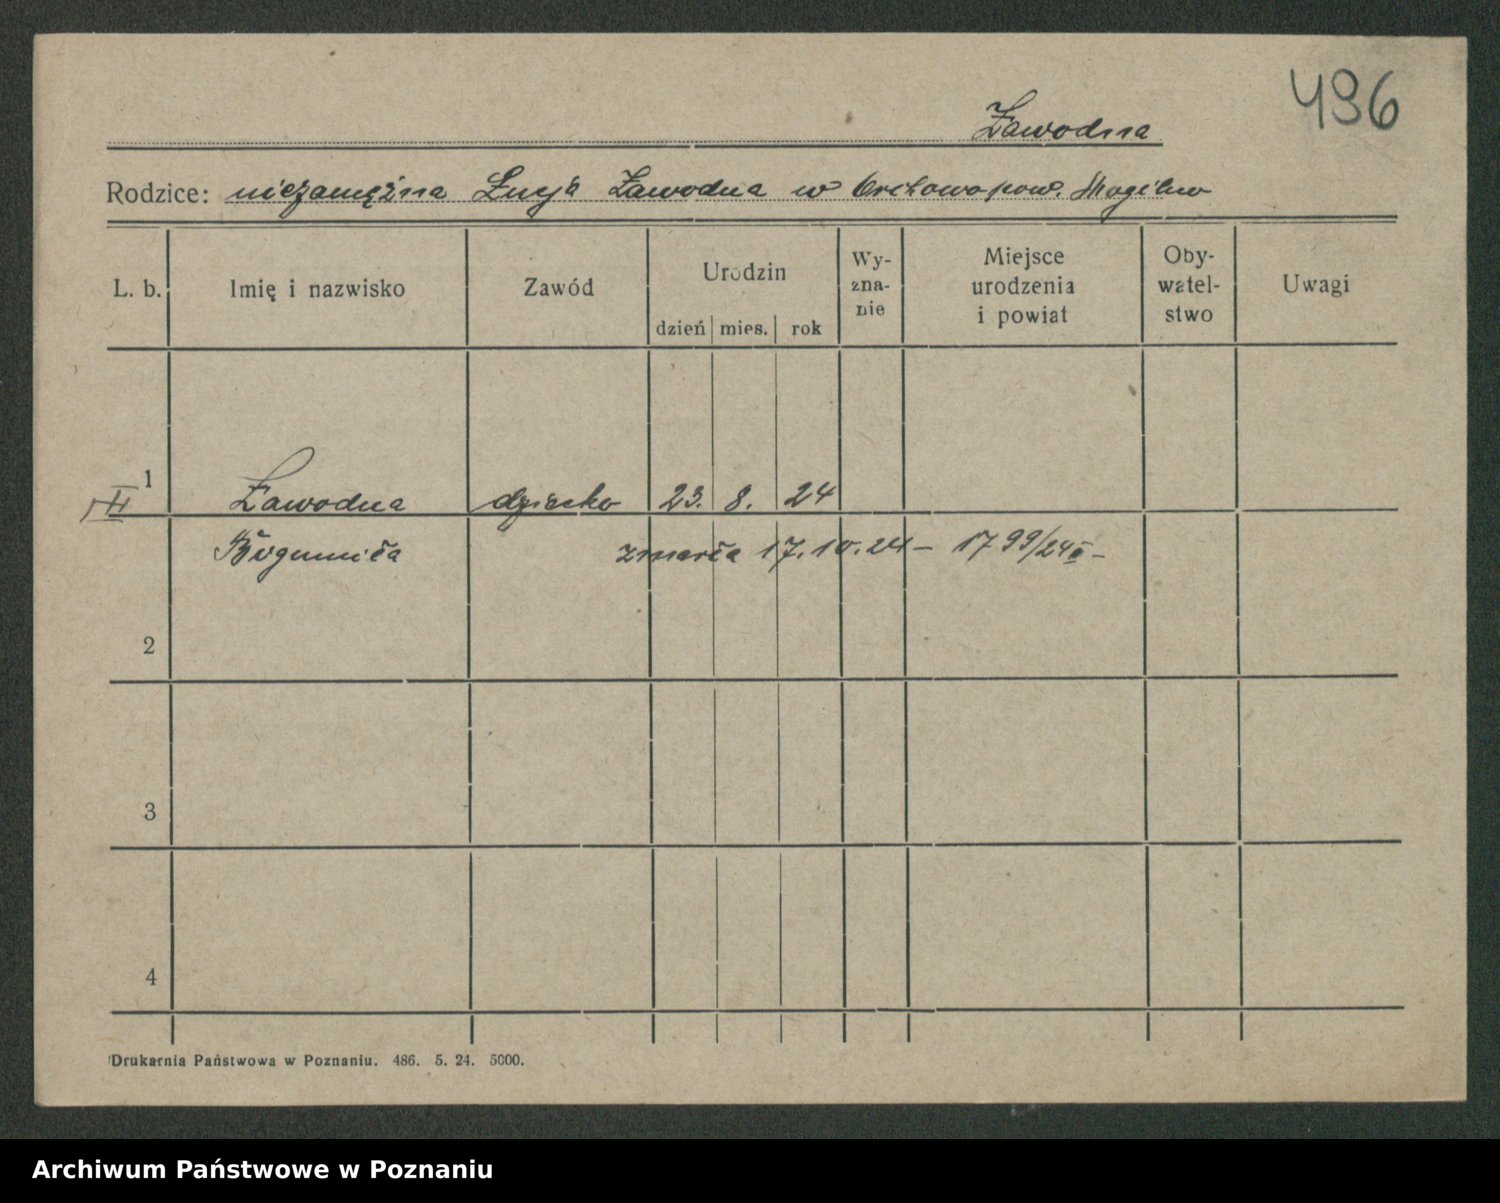 496
Zawodna
Rodzice: niezamężna Łucja Zawodna w Orchowo pow. Mogilno
L. b. Imię i nazwisko Zawód Urodzin dzień mies. rok Wy-zna-nie Miejsce urodzenia i powiat Oby-watel-stwo Uwagi
1
II Zawodna dziecko 23. 8. 24
Bogumiła zmarła 17.10.24 – 1799/24
2
3
4
Drukarnia Państwowa w Poznaniu. 486. 5. 24. 5000.
Archiwum Państwowe w Poznaniu